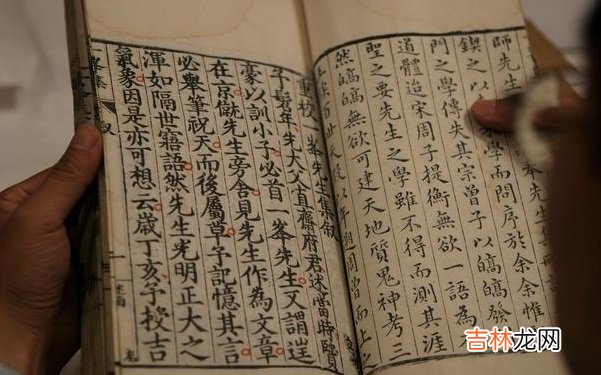 師先生
鍥之以 學而問序於余余惟
門之學傳失其宗曾子以皜皜發
道體迨宋周子提衡無欲一語為
聖之要先生之學雖不得而測其涯
然皜皜無欲可建天地質鬼神考三
百世
重校 峯先生集叙
予髫年先大父直齋府君述當時賢
豪以訓小子必首一峯先生又謂逕
在京僦先生旁舍見先生作為文章
必舉筆祝天而後屬草予記憶其言
渾如隔世寤語然先生光明正大之
氣象因是亦可想云嵗丁亥予授吉
峯集 叙
一
吉林龙网